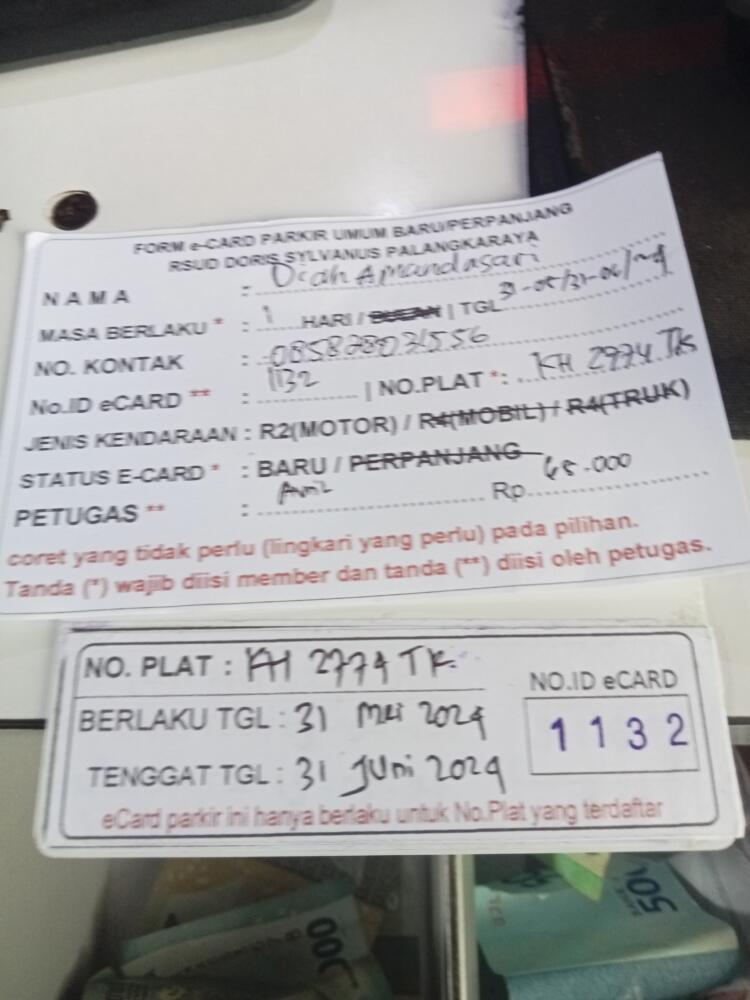 FORM e-CARD PARKIR UMUM BARU/PERPANJANG
RSUD DORIS SYLVANUS PALANGKARAYA
NAMA : Diah Amandasari
MASA BERLAKU * : 1 HARI / BULAN | TGL 31-05/31-06/
NO. KONTAK :
No.ID eCARD ** : 1132 | NO.PLAT *: KH 2974 TK
JENIS KENDARAAN : R2(MOTOR) / R4(MOBIL) / R4(TRUK)
STATUS E-CARD * : BARU / PERPANJANG
PETUGAS ** : Rp. 68.000
coret yang tidak perlu (lingkari yang perlu) pada pilihan.
Tanda (*) wajib diisi member dan tanda (**) diisi oleh petugas.
NO. PLAT : KH 2774 TK
NO.ID eCARD
BERLAKU TGL : 31 Mei 2024
1132
TENGGAT TGL : 31 Juni 2024
eCard parkir ini hanya berlaku untuk No.Plat yang terdaftar